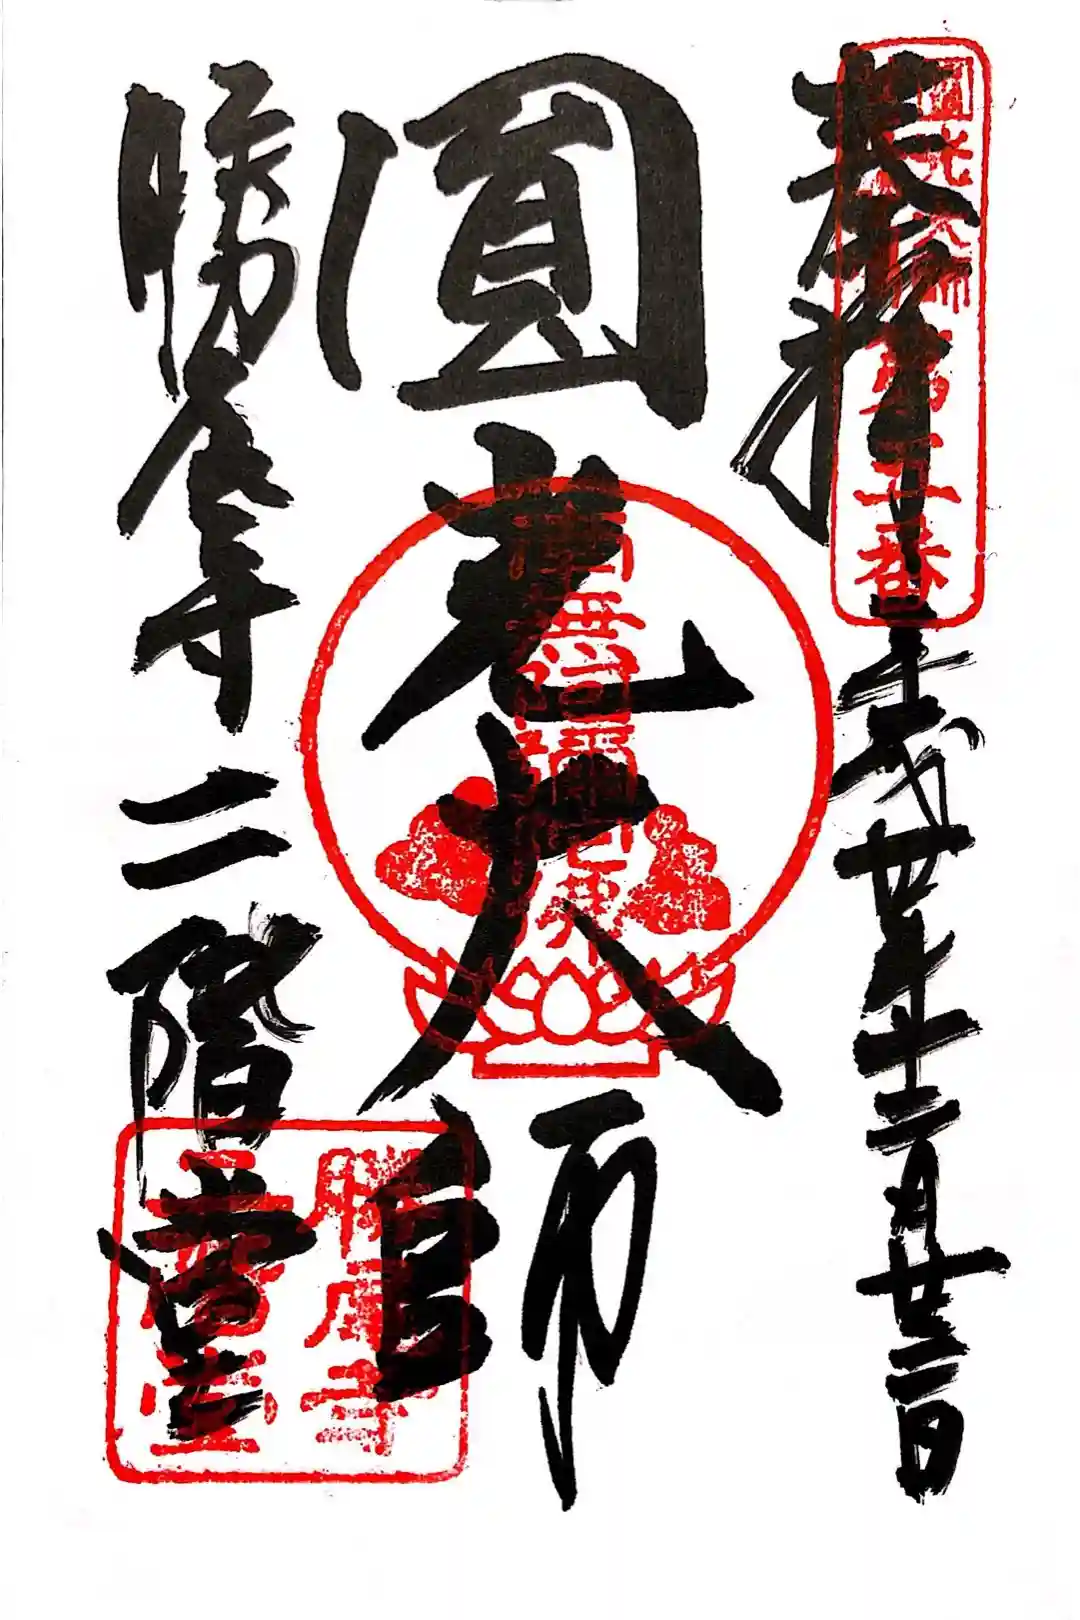 奉拝
平成廿年十二月廿二日
圓光大師
勝尾寺二階堂
圓光大師第五番
南無阿彌陀佛
勝尾寺
二階堂